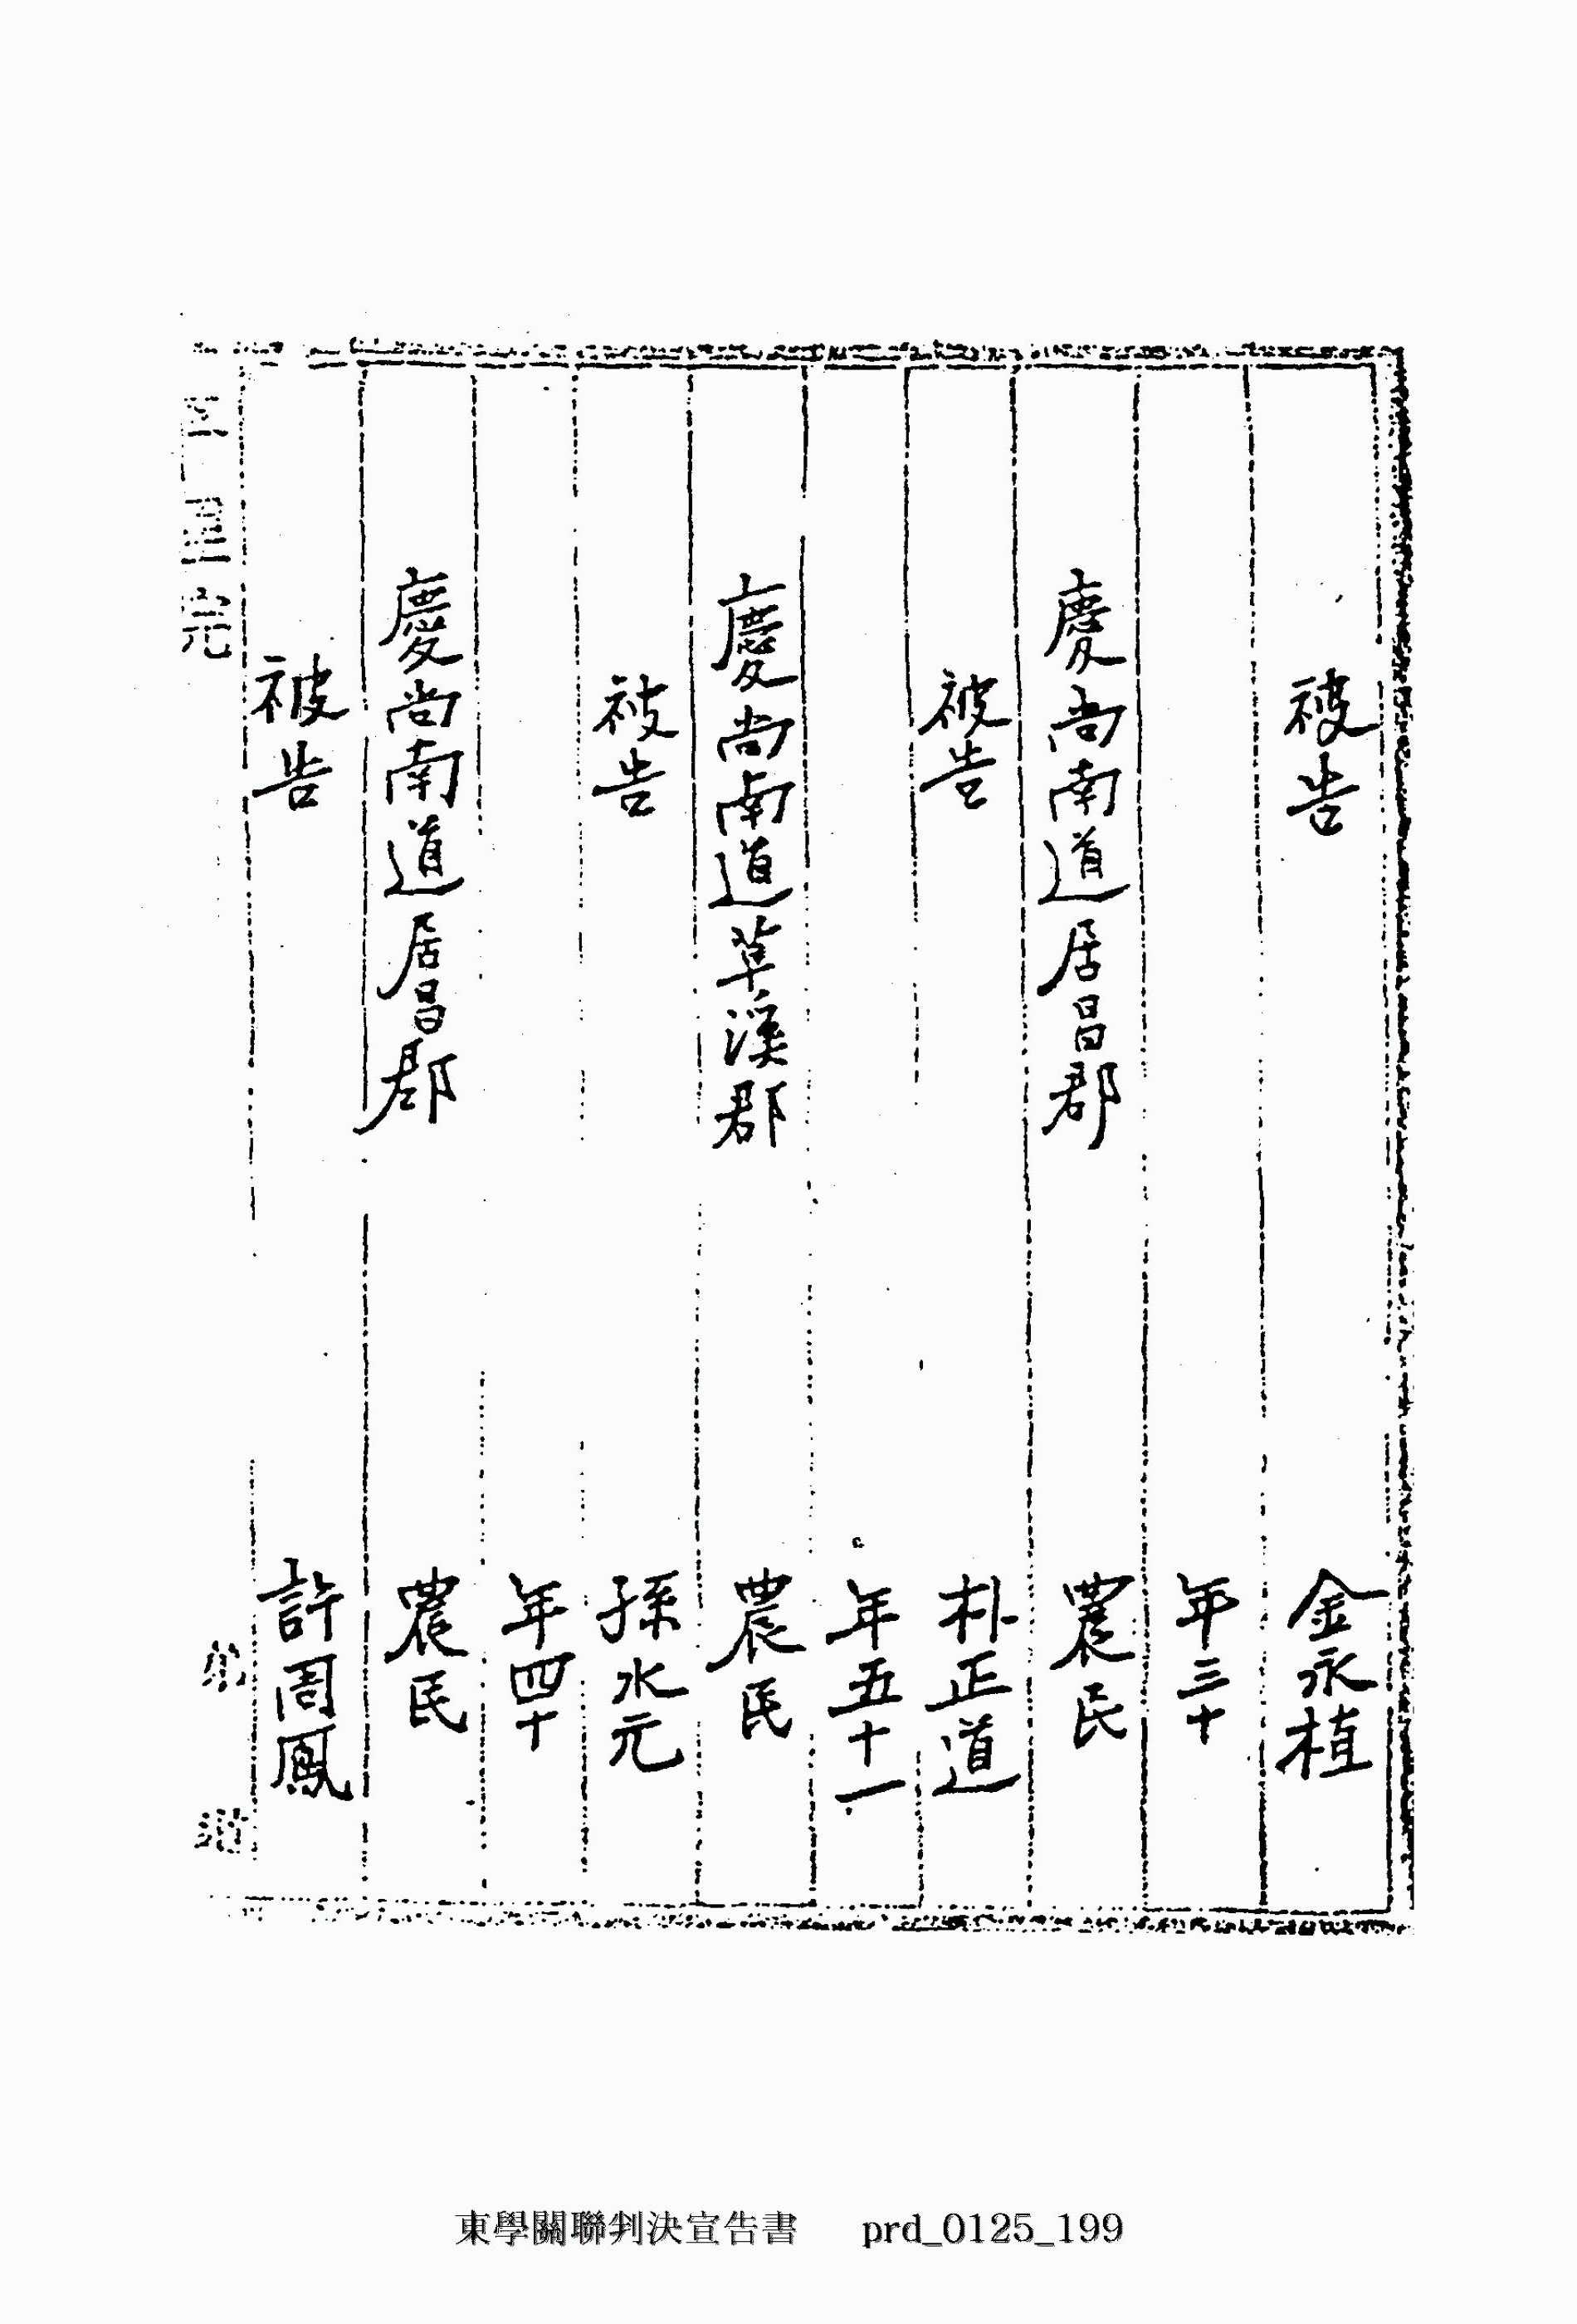 被告 金永植
年三十
慶尚南道居昌郡 農民
被告 朴正道
年五十一
慶尚南道草溪郡 農民
被告 孫水元
年四十
慶尚南道居昌郡 農民
被告 許周鳳
東學關聯判決宣告書 prd_0125_199